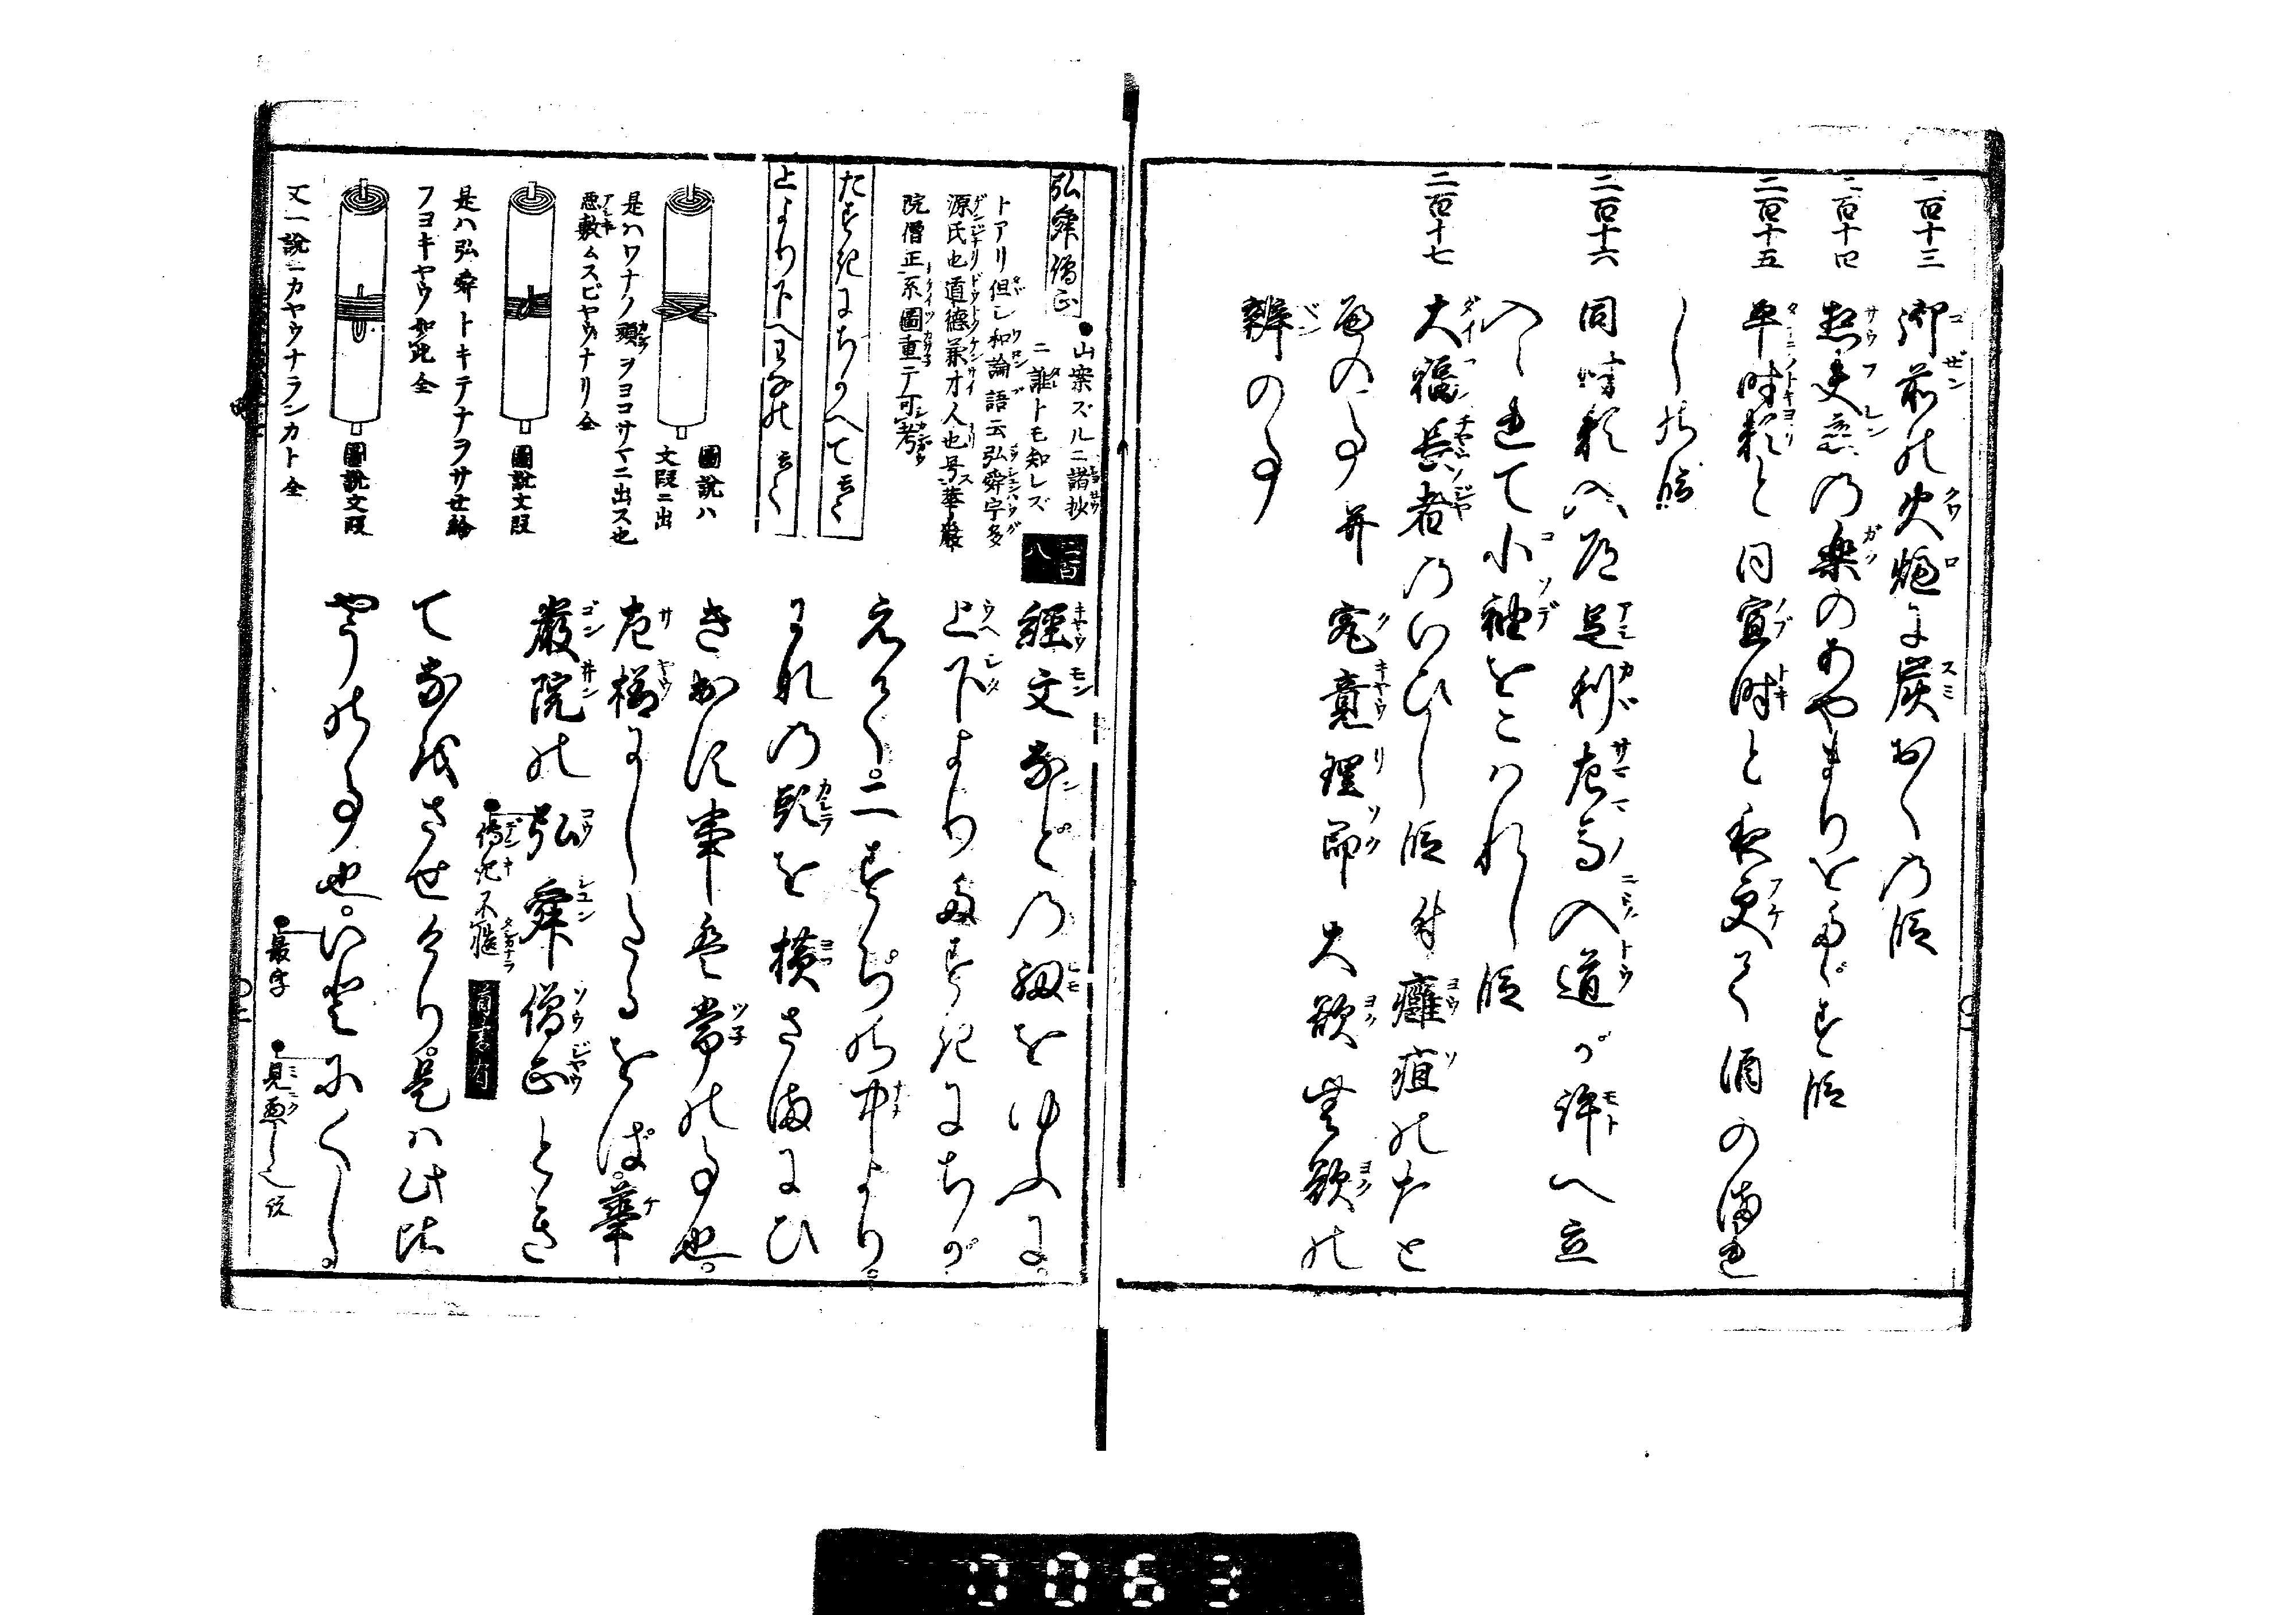 二百十三
御前の火爐に炭おくの段
二百十四
想夫恋の楽のあやまりをたゞす段
二百十五
平時頼と同宣時と夜更て酒のまれ
しの段
二百十六
同時頼入道足利左馬入道が許へ立
入られて小袖をこはれし段
二百十七
大福長者のいひし段付癰疽のたと
への事并究竟理即大欲無欲の
辨の事
弘舜僧正
●山案ズルニ諸抄
ニ誰トモ知レズ
トアリ但シ和論語云弘舜宇多
源氏也道徳兼才人也号華嚴
院僧正系圖重テ可考
たすきにちかへて云々
上より下へわなの云々
圖説ハ
文段ニ出
是ハワナノ頭ヲヨコサマニ出ス也
悪敷ムスビヤウナリ仝
圖説文段
是ハ弘舜トキテナヲサセ給
フヨキヤウ如此仝
圖説文段
又一説ニカヤウナランカト仝
二百
八
經文などの紐をゆふに
上下よりたすきにちが
えて。二すぢの中より。
わなの頭を横さまにひ
き出す事は常の事也。
左様にしたるをば。華
嚴院の弘舜僧正とき
傳記不慥
首書有
てなほさせけり。是は此比
やうの事也。いとにくし。